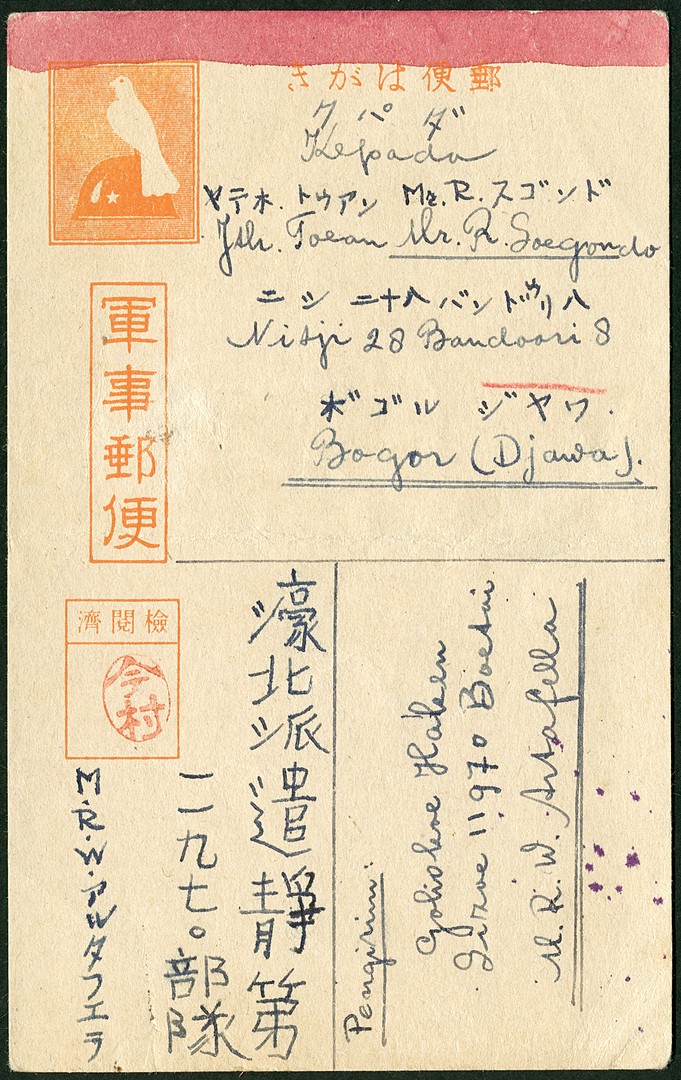 きがは便郵
クパダ
Kepada
ヤテホ. トウアン Mr. R. スゴンド
Jth. Toean Mr. R. Soegondo
ニシ 二十八 バンドゥリ 八
Nisji 28 Bandoori 8
ボゴル ジヤワ.
Bogor (Djawa).
軍事郵便
濟閲檢
今村
濠北派遣靜第
一一九七〇部隊
M.R.W.アルタフエラ
Pengirim:
Gohokoe Haken
11970 Boetai
M. R. W. Artafella